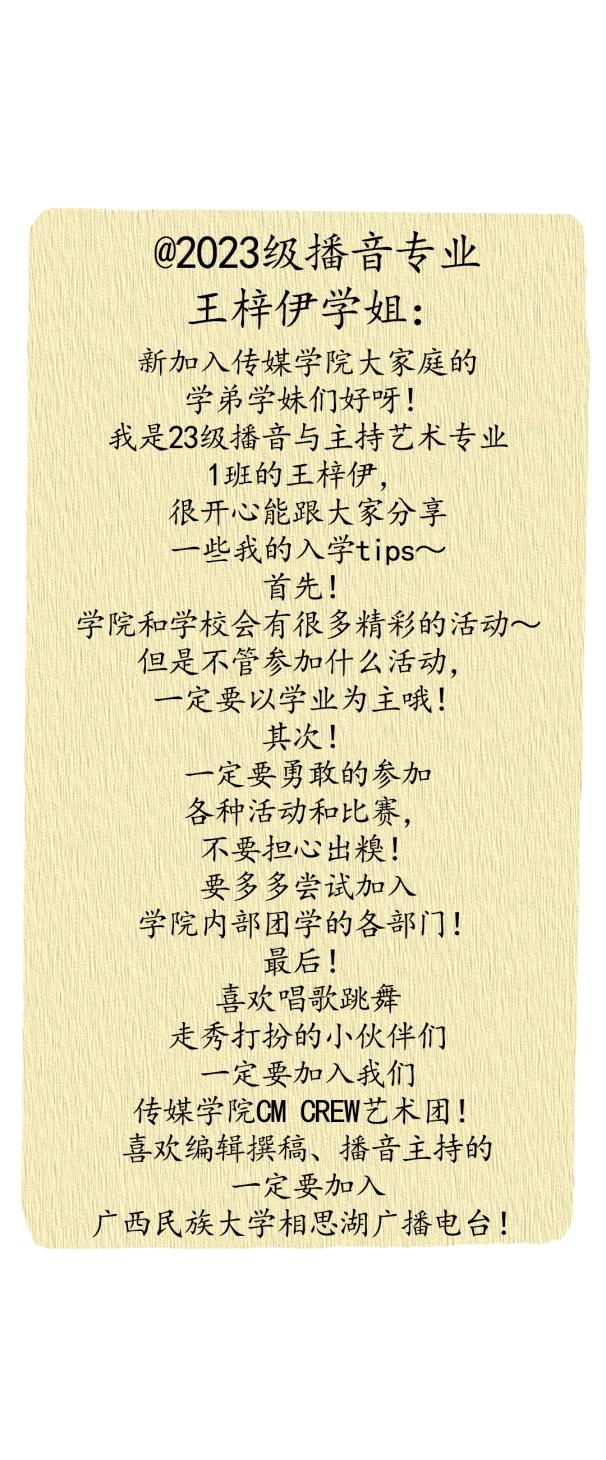 @2023级播音专业
王梓伊学姐：
新加入传媒学院大家庭的
学弟学妹们好呀！
我是23级播音与主持艺术专业
1班的王梓伊，
很开心能跟大家分享
一些我的入学tips～
首先！
学院和学校会有很多精彩的活动～
但是不管参加什么活动，
一定要以学业为主哦！
其次！
一定要勇敢的参加
各种活动和比赛，
不要担心出糗！
要多多尝试加入
学院内部团学的各部门！
最后！
喜欢唱歌跳舞
走秀打扮的小伙伴们
一定要加入我们
传媒学院CM CREW艺术团！
喜欢编辑撰稿、播音主持的
一定要加入
广西民族大学相思湖广播电台！